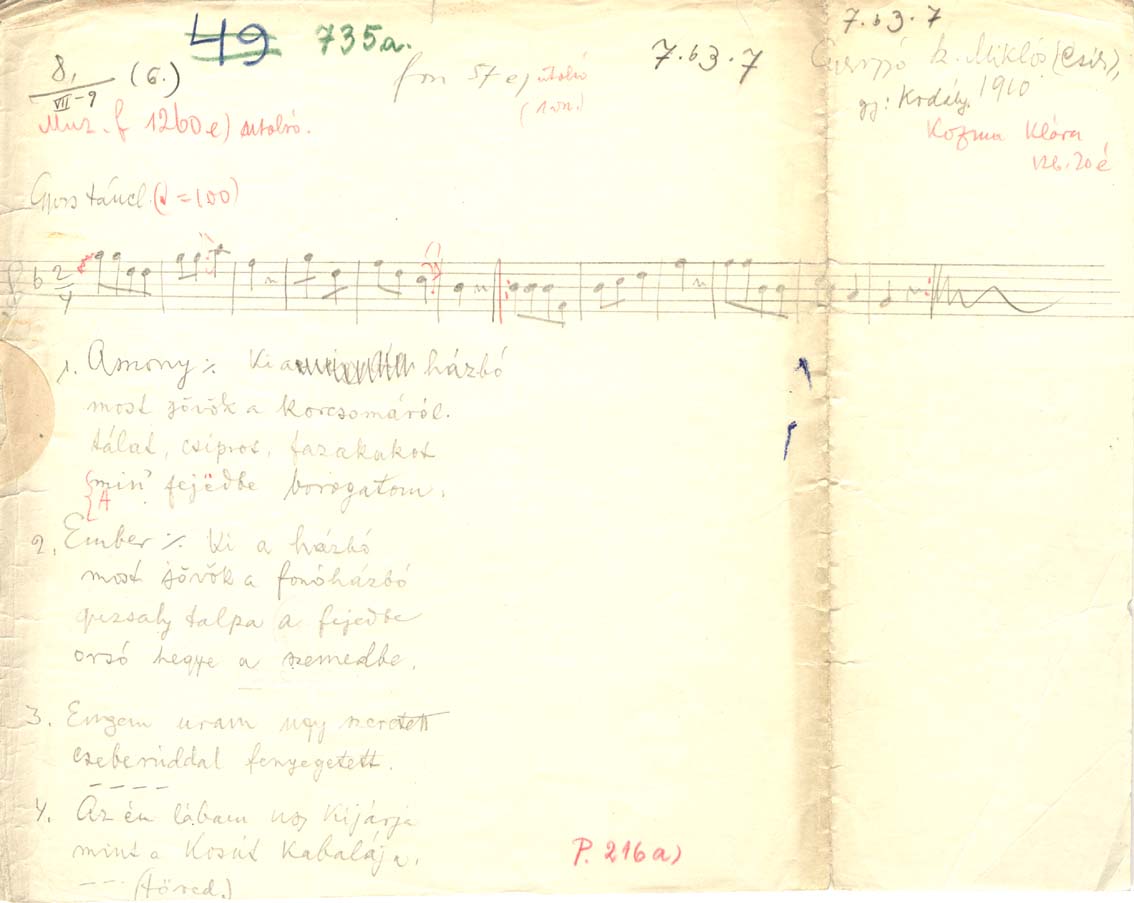 49 735a.
7.b3.7
8, (6.)
VII-9
fon 57 e) utolsó
7.b3.7
k. Miklós (Csík),
(1on.)
gy: Kodály, 1910
Muz. f 1260 e) utolsó.
Kozma Klára
Gyors táncl. (♩=100)
2
4
1. Asszony ٪ Ki a házbó
most jövök a korcsomáról.
tálat, csiprot, fazakakot
min' fejëdbe borogatom.
A
2. Ember ٪ Ki a házbó
most jövök a fonóházbó
guzsaly talpa a fejedbe
orsó hegye a szemedbe.
3. Engem uram ugy szeretett
cseberúddal fenyegetett.
----
4. Az én lábam ugy kijárja
mint a Kosút kabalája.
--- (töred.)
P. 216a)